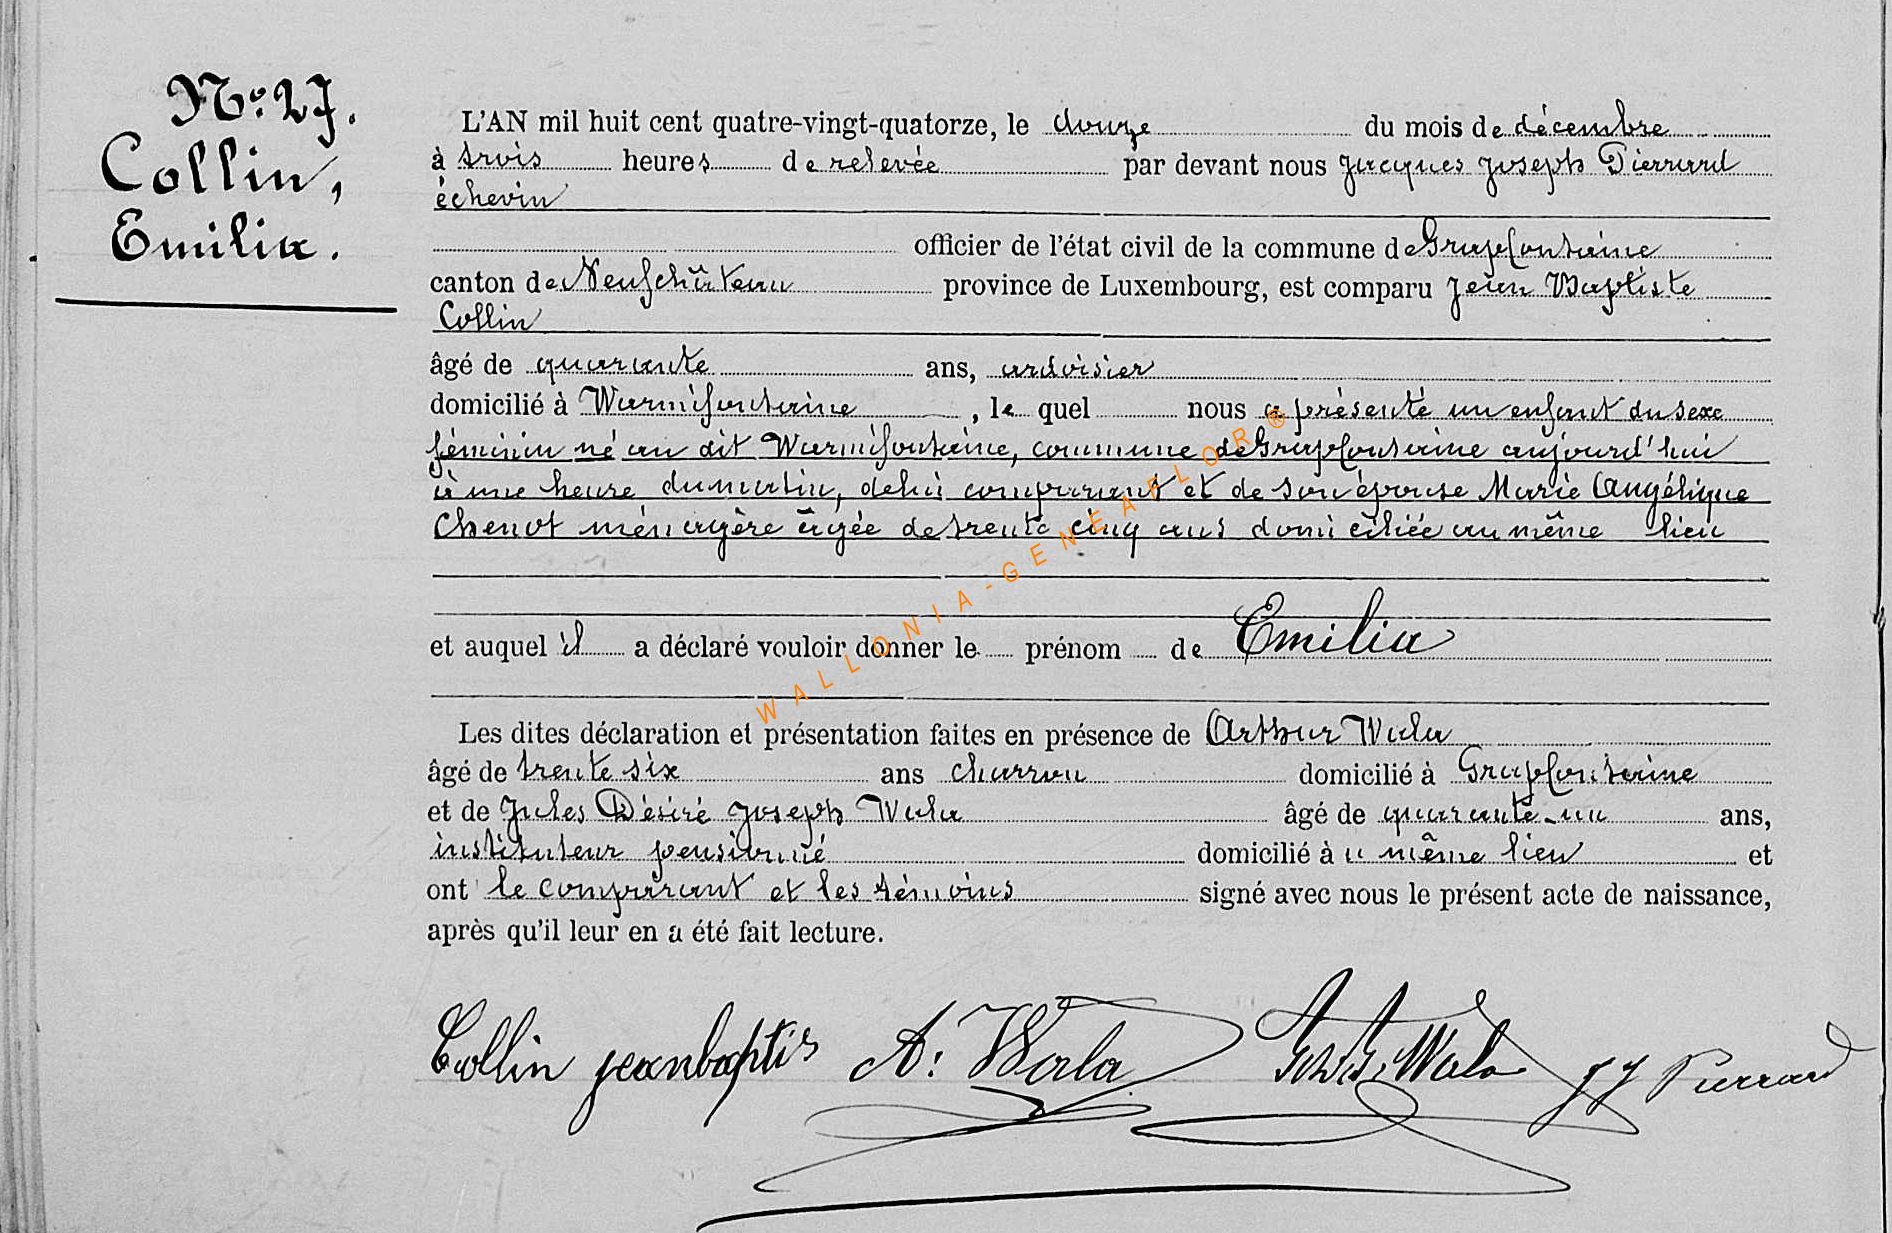 N° 27.
Collin,
Emilia.
L'AN mil huit cent quatre-vingt-quatorze, le douze du mois de décembre
à trois heures de relevée par devant nous Jacques Joseph Pierrard
échevin
officier de l'état civil de la commune de Grapfontaine
canton de Neufchâteau province de Luxembourg, est comparu Jean Baptiste
Collin
âgé de quarante ans, ardoisier
domicilié à Warmifontaine, le quel nous a présenté un enfant du sexe
féminin né au dit Warmifontaine, commune de Grapfontaine aujourd'hui
à une heure du matin, de lui comparant et de son épouse Marie Angélique
Chenot ménagère âgée de trente cinq ans domiciliée au même lieu
et auquel il a déclaré vouloir donner le prénom de Emilia
Les dites déclaration et présentation faites en présence de Arthur Wala
âgé de trente six ans charron domicilié à Grapfontaine
et de Jules Désiré Joseph Wala âgé de quarante-un ans,
instituteur pensionné domicilié à u même lieu et
ont le comparant et les témoins signé avec nous le présent acte de naissance,
après qu'il leur en a été fait lecture.
Collin jeanbaptis A. Wala Wala JJ Pierrard
WALLONIA-GENEAFLOR®